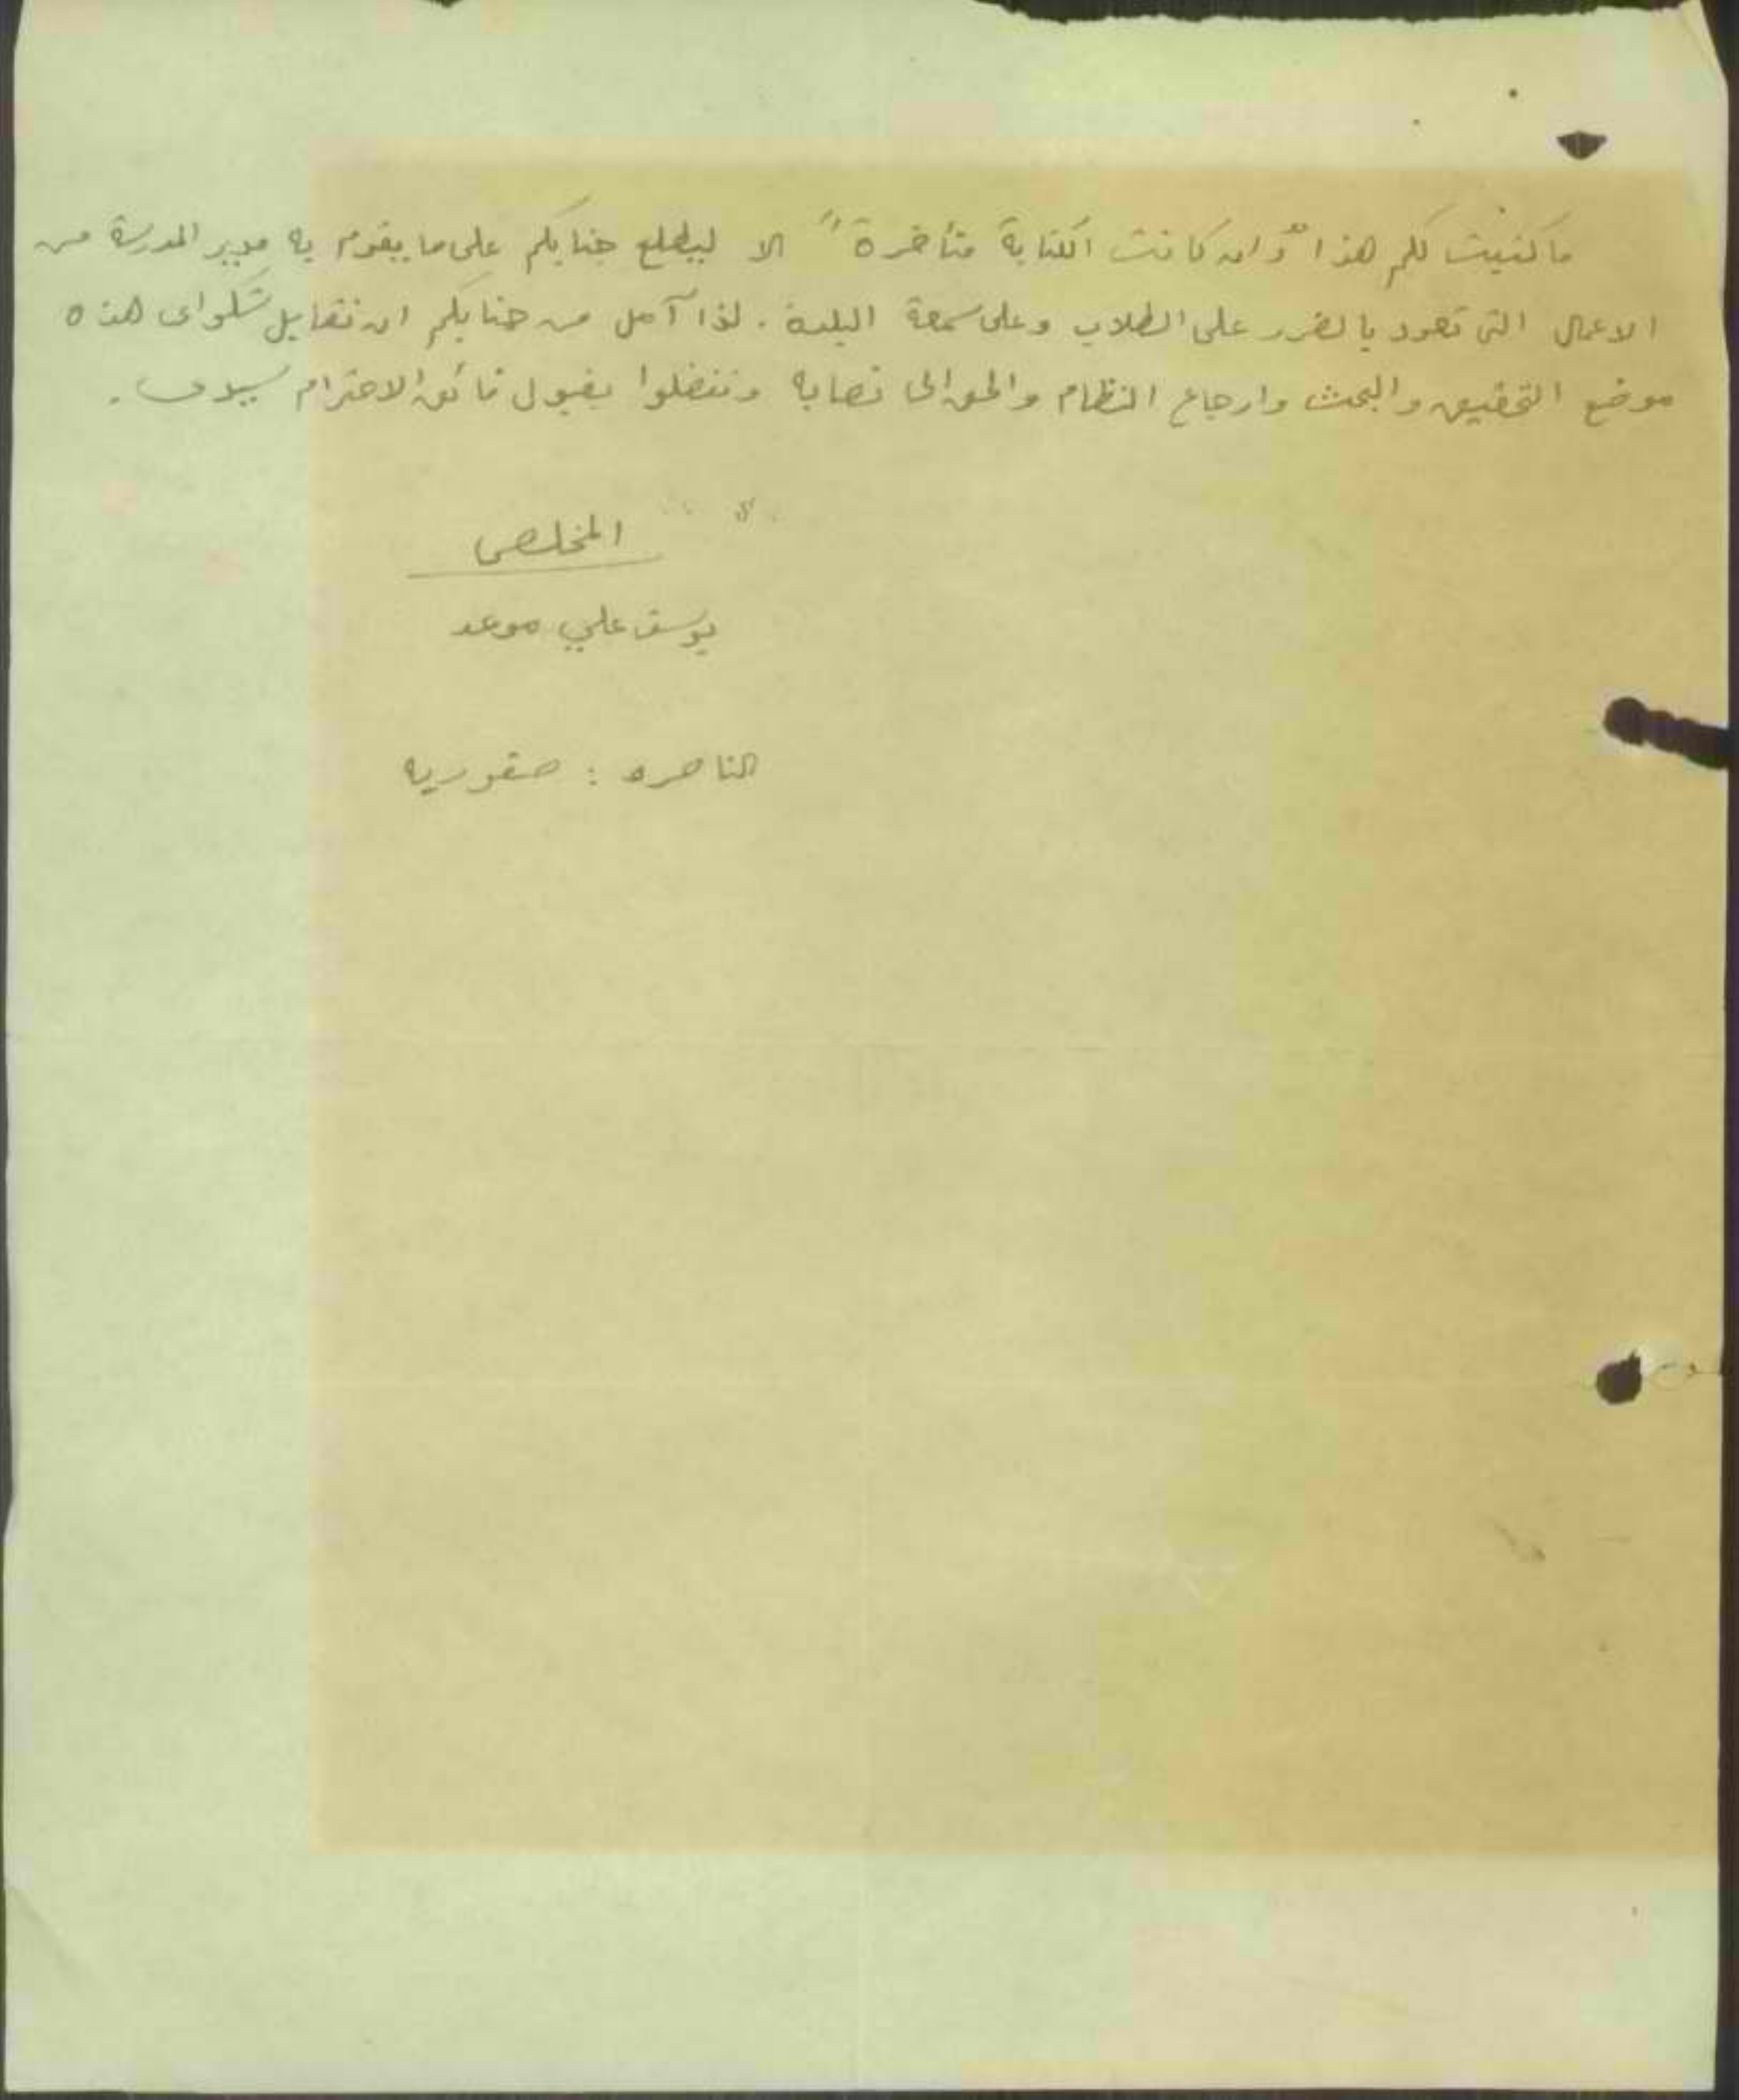 ما كتبت لكم هذا "وان كانت الكتابة متأخرة" الا ليطلع جنابكم على ما يقوم به مدير المدرسة من
الاعمال التي تعود بالضرر على الطلاب وعلى سمعة البلدة . لذا آمل من جنابكم ان تقابل شكواى هذه
موضع التحقيق والبحث وارجاع النظام والحق الى نصابه وتفضلوا بقبول فائق الاحترام سيدى .
المخلص
يوسف علي موعد
الناصره : صفوريه